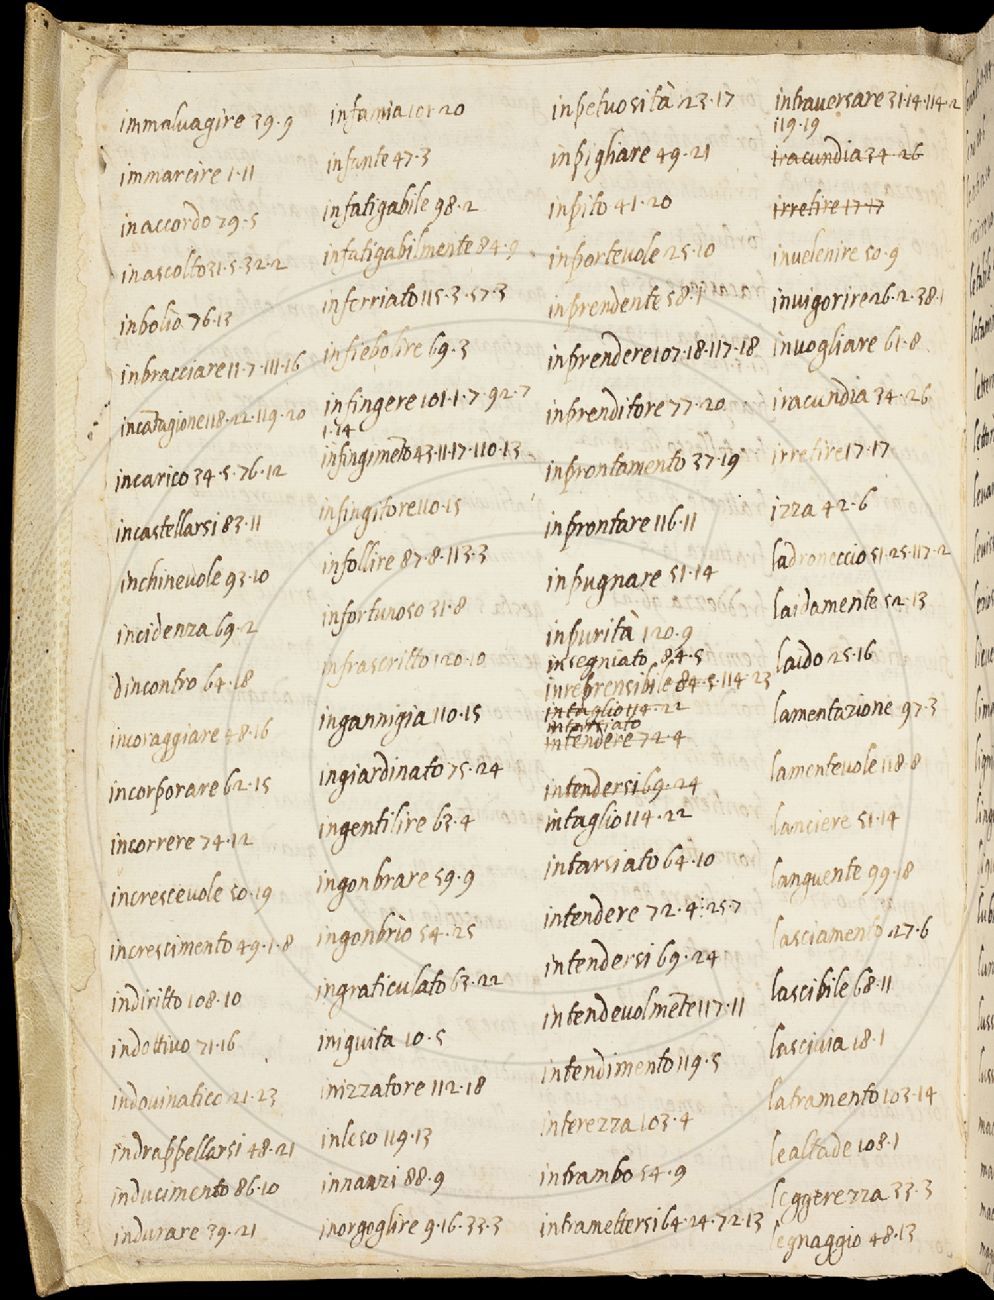 immalvagire 39·9
immarcire 1·11
inaccordo 79·5
inascolto 31·5·32·2
inbolio 76·13
inbracciare 11·7·111·16
incātagione 118·22·119·20
incarico 34·5·76·12
incastellarsi 83·11
inchinevole 93·10
incidenza 69·2
dincontro 64·18
incoraggiare 48·16
incorporare 62·15
incorrere 74·12
increscevole 50·19
increscimento 49·1·8
indiritto 108·10
indottivo 71·16
indovinatico 21·23
indrappellarsi 48·21
inducimento 86·10
indurare 39·21
infamia 101·20
infante 47·3
infatigabile 98·2
infatigabilmente 84·9
inferriato 115·3·57·3
infiebolire 69·3
infingere 101·1·7·92·7
1·14
infingimēto 43·11·17·110·13
infingitore 110·15
infollire 87·8·113·3
infortunoso 31·8
infrascritto 120·10
ingannigia 110·15
ingiardinato 75·24
ingentilire 63·4
ingonbrare 59·9
ingonbrio 54·25
ingraticulato 63·22
iniquita 10·5
inizzatore 112·18
inleso 119·13
innanzi 88·9
inorgoglire 9·16·33·3
inpetuosità 23·17
inpigliare 49·21
inpito 41·20
inportevole 25·10
inprendente 58·1
inprendere 107·18·117·18
inprenditore 77·20
inprontamento 37·19
inprontare 116·11
inpugnare 51·14
inpurità 120·9
insegniato 84·5
inreprensibile 84·5·114·23
intaglio 114·22
intarsiato
intendere 72·4
intendersi 69·24
intaglio 114·22
intarsiato 64·10
intendere 72·4·25·7
intendersi 69·24
intendevolmēte 117·11
intendimento 119·5
interezza 103·4
intrambo 54·9
intramettersi 64·24·72·13
intraversare 31·14·114·2
119·19
iracundia 34·26
irretire 17·17
invelenire 50·9
invigorire 26·2·38·1
invogliare 61·8
iracundia 34·26
irretire 17·17
izza 42·6
ladroneccio 51·25·117·2
laidamente 52·13
laido 25·16
lamentazione 97·3
lamentevole 118·8
lanciere 51·14
languente 99·18
lasciamento 27·6
lascibile 68·11
lascivia 18·1
latramento 103·14
lealtade 108·1
leggerezza 33·3
legnaggio 48·13